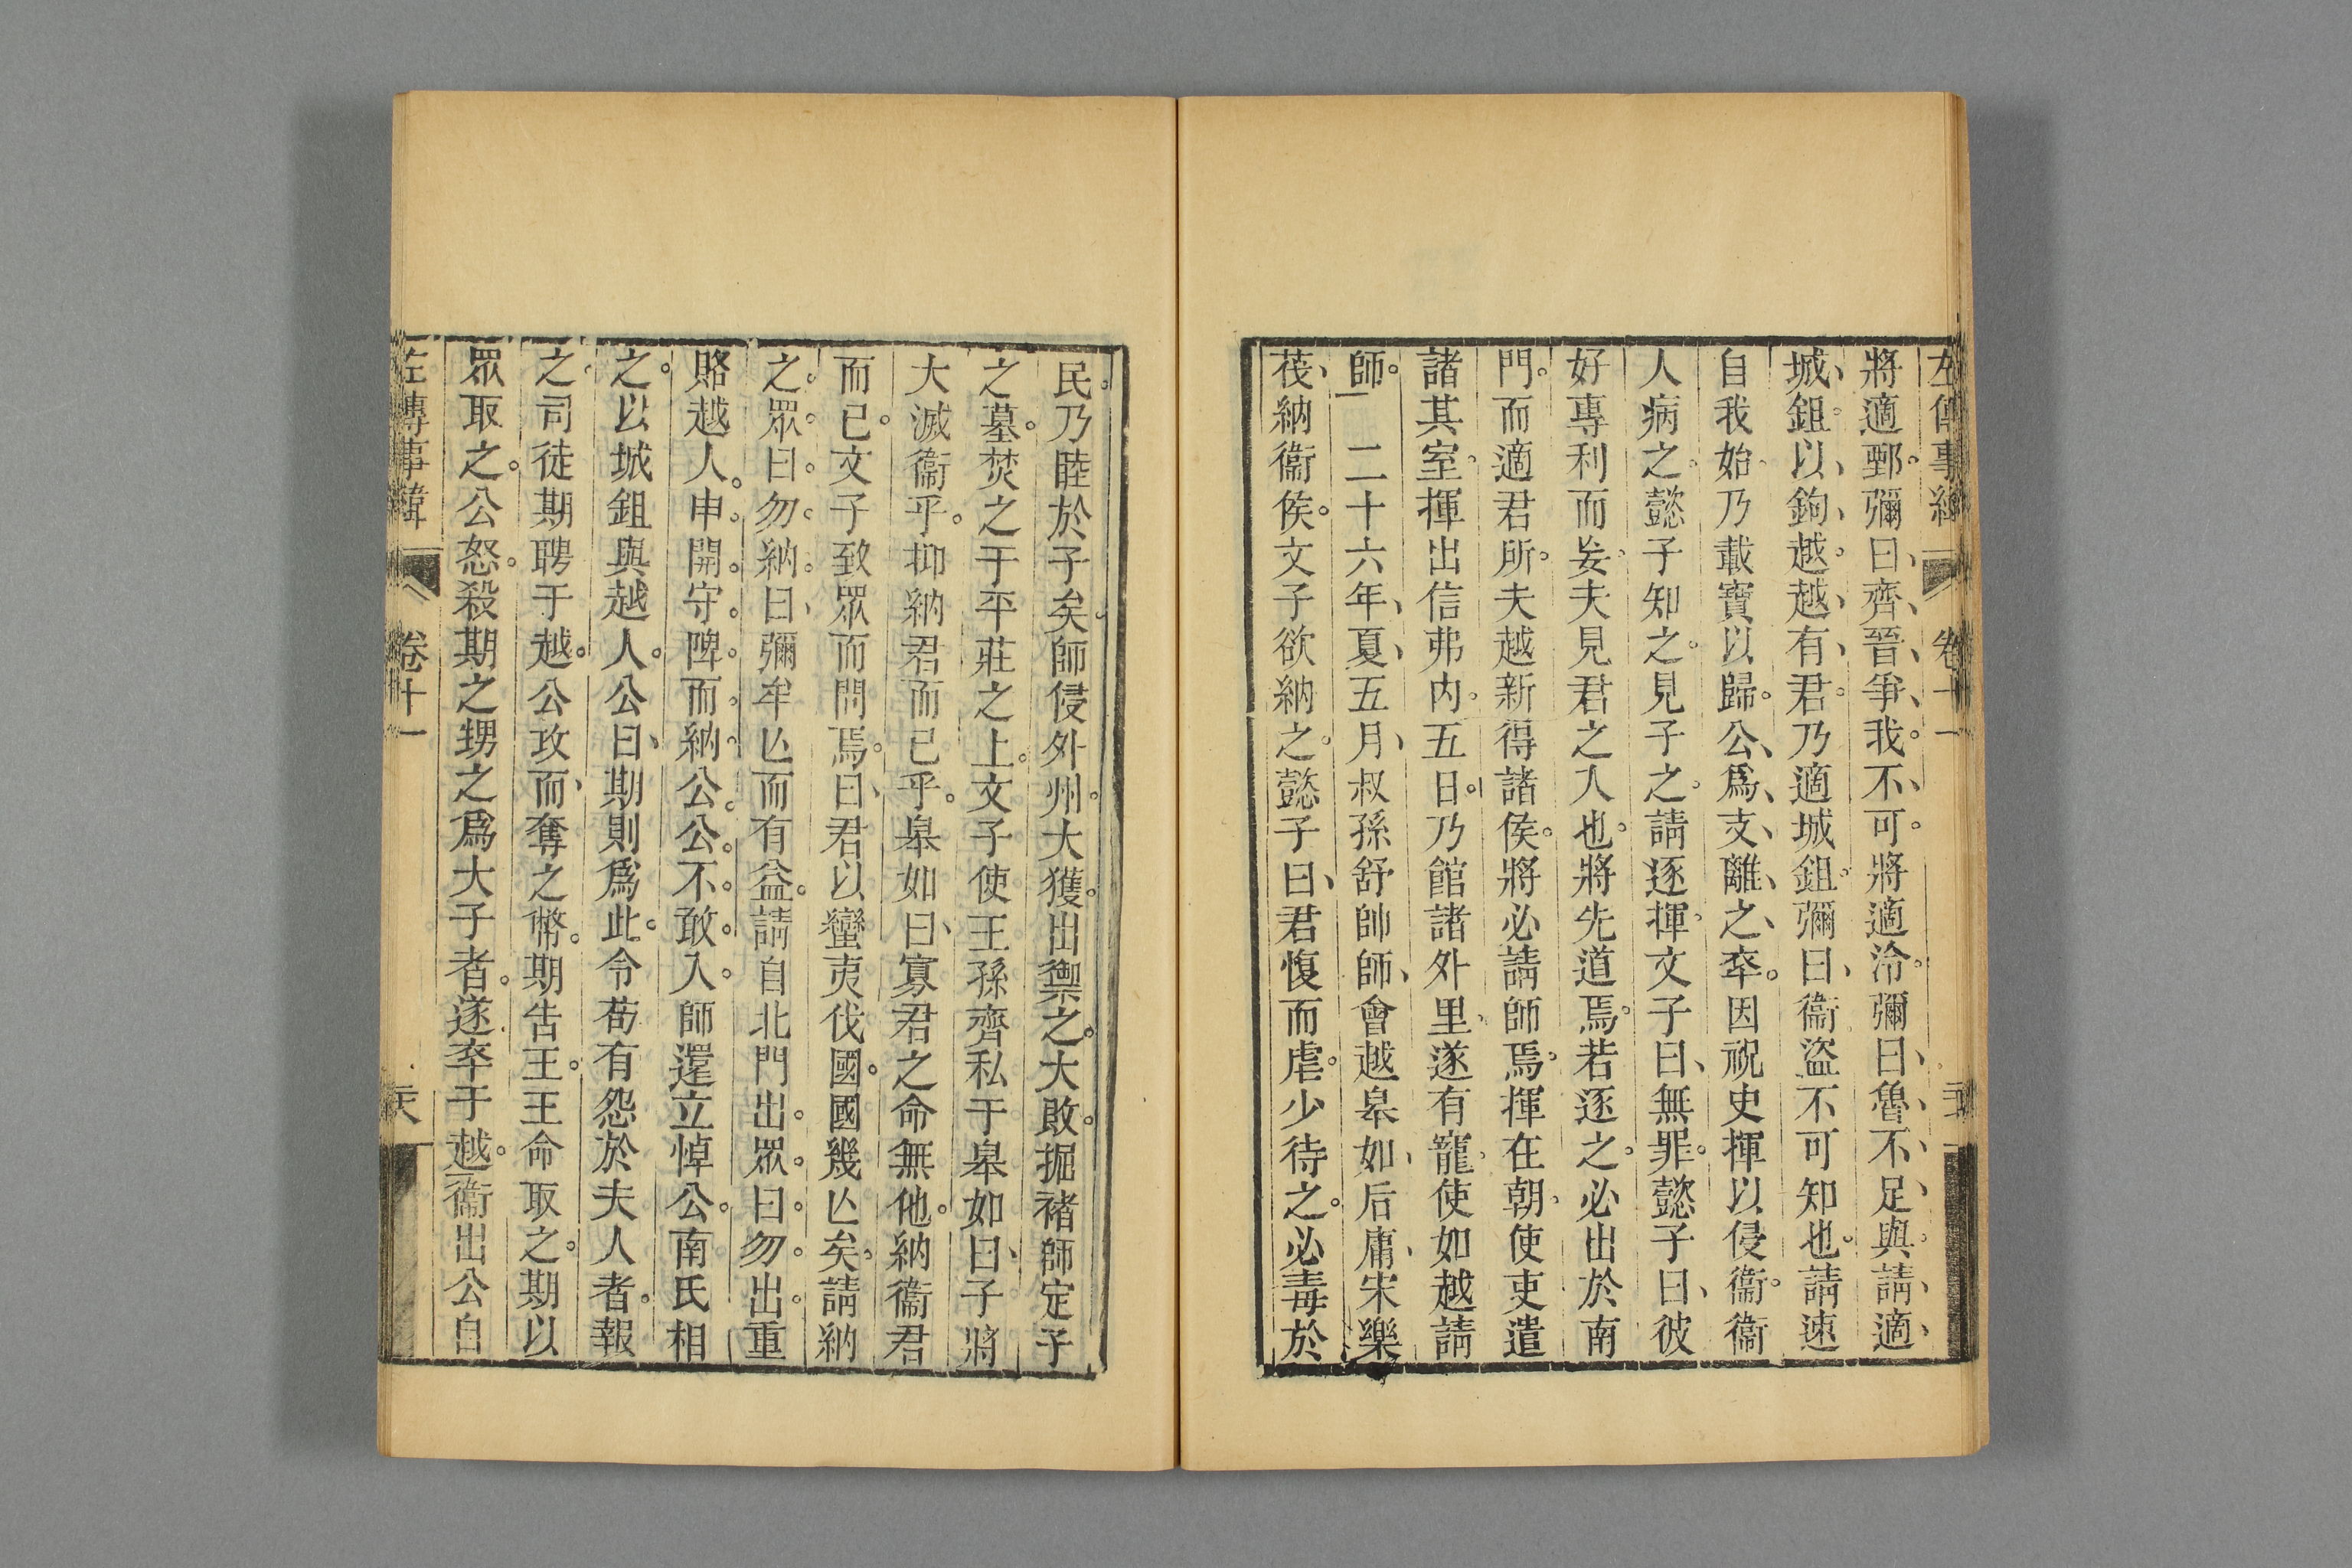 左傳事緯 卷十一
將適鄄彌曰齊晉爭我不可將適泠彌曰魯不足與請適
城鉏以鉤越越有君乃適城鉏彌曰衞盜不可知也請速
自我始乃載寶以歸公爲支離之卒因祝史揮以侵衞衞
人病之懿子知之見子之請逐揮文子曰無罪懿子曰彼
好專利而妄夫見君之入也將先道焉若逐之必出於南
門而適君所夫越新得諸侯將必請師焉揮在朝使吏遣
諸其室揮出信弗内五日乃館諸外里遂有寵使如越請
師 二十六年夏五月叔孫舒帥師會越皋如后庸宋樂
茷納衞侯文子欲納之懿子曰君愎而虐少待之必毒於
民乃睦於子矣師侵外州大獲出禦之大敗掘褚師定子
之墓焚之于平莊之上文子使王孫齊私于皋如曰子將
大滅衞乎抑納君而已乎皋如曰寡君之命無他納衞君
而已文子致眾而問焉曰君以蠻夷伐國國幾亾矣請納
之眾曰勿納曰彌牟亾而有益請自北門出眾曰勿出重
賂越人申開守陴而納公公不敢入師還立悼公南氏相
之以城鉏與越人公曰期則爲此令茍有怨於夫人者報
之司徒期聘于越公攻而奪之幣期告王王命取之期以
眾取之公怒殺期之甥之爲大子者遂卒于越衞出公自
左傳事緯 卷十一